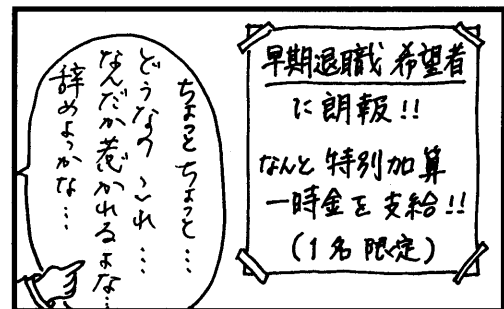 早期退職 希望者
に朗報!!
なんと 特別加算
一時金を支給!!
(1名限定)
ちょっとちょっと…
どうなの これ…
なんだか惹かれるよな…
辞めよっかな…